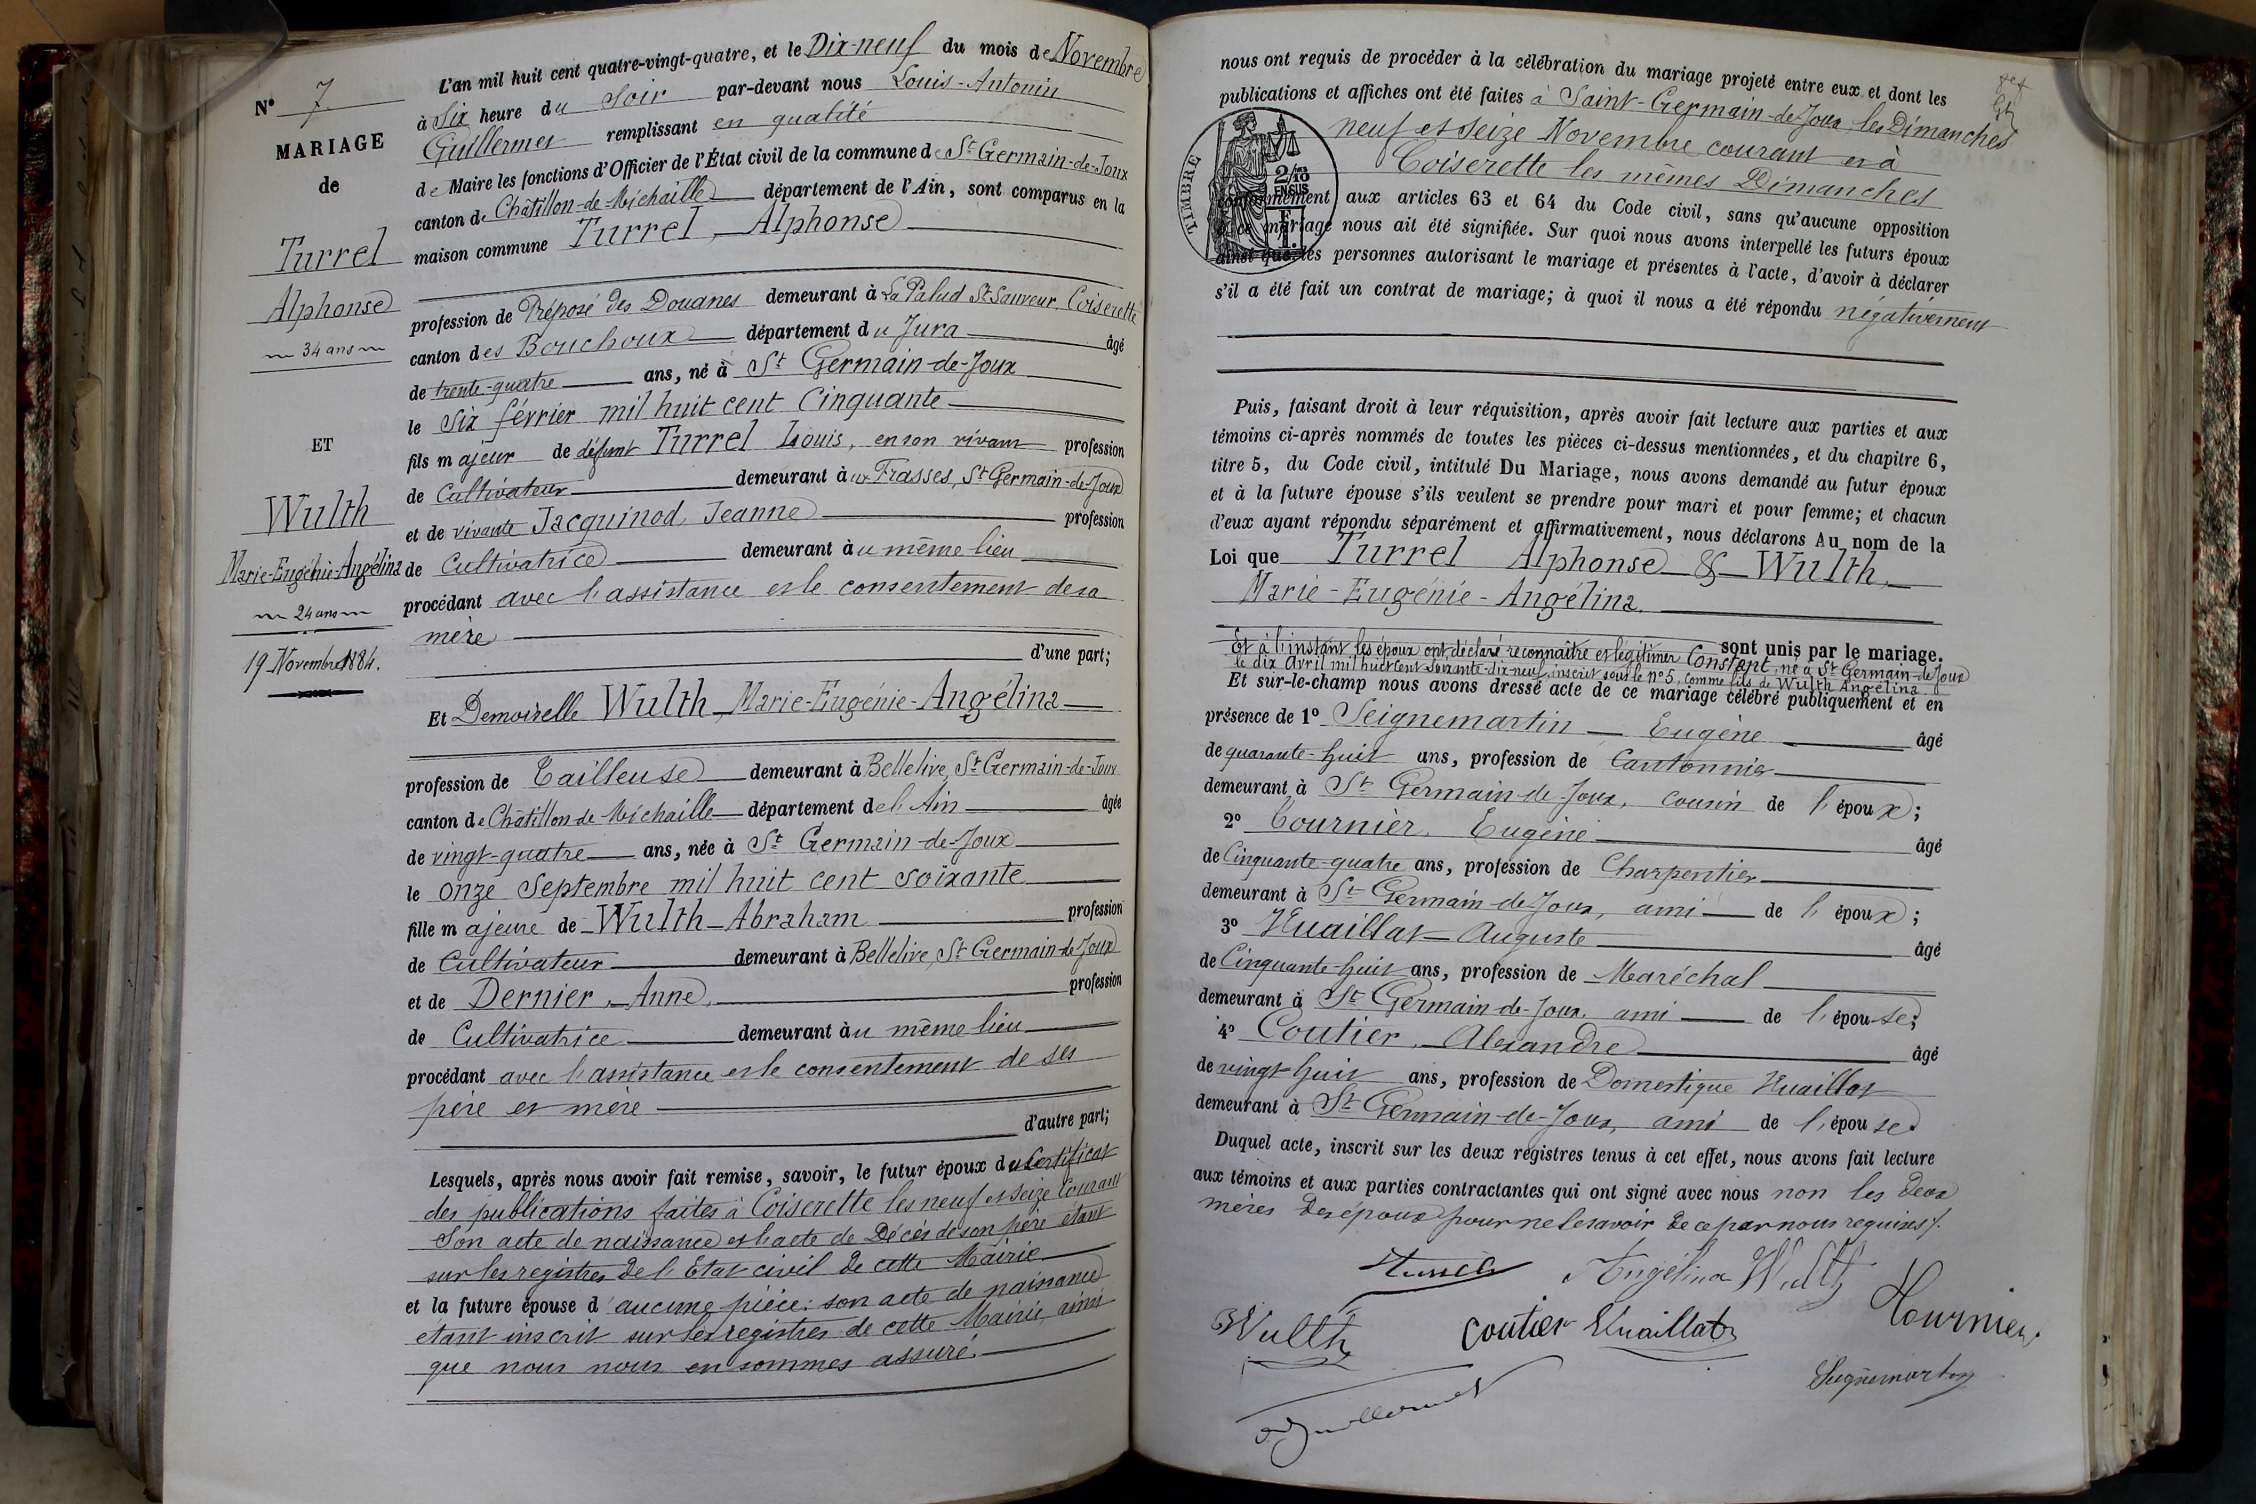 N° 7
MARIAGE
de
Turrel
Alphonse
34 ans
ET
Wulth
Marie-Eugénie-Angélina
24 ans
19 Novembre 1884.
L'an mil huit cent quatre-vingt-quatre, et le Dix-neuf du mois de Novembre
à Six heure du Soir par-devant nous Louis-Antonin
Guillermet remplissant en qualité
de Maire les fonctions d'Officier de l'État civil de la commune de St Germain-de-Joux
canton de Châtillon-de-Michaille département de l'Ain, sont comparus en la
maison commune Turrel, Alphonse
profession de Préposé des Douanes demeurant à La Palud St Sauveur, Coiserette
canton des Bouchoux département du Jura âgé
de trente-quatre ans, né à St Germain-de-Joux
le Six février mil huit cent Cinquante
fils majeur de défunt Turrel Louis, en son vivant profession
de Cultivateur demeurant aux Frasses, St Germain-de-Joux
et de vivante Jacquinod, Jeanne profession
de Cultivatrice demeurant au même lieu
procédant avec l'assistance et le consentement de sa
mère
d'une part;
Et Demoiselle Wulth, Marie-Eugénie-Angélina
profession de Tailleuse demeurant à Bellelive, St Germain-de-Joux
canton de Châtillon de Michaille département de l'Ain âgée
de vingt-quatre ans, née à St Germain-de-Joux
le onze Septembre mil huit cent soixante
fille majeure de Wulth Abraham profession
de Cultivateur demeurant à Bellelive, St Germain-de-Joux
et de Dernier, Anne, profession
de Cultivatrice demeurant au même lieu
procédant avec l'assistance et le consentement de ses
père et mère
d'autre part;
Lesquels, après nous avoir fait remise, savoir, le futur époux du Certificat
des publications faites à Coiserette les neuf et seize Courant
Son acte de naissance et l'acte de Décès de son père étant
sur les registres de l'Etat civil de cette Mairie
et la future épouse d'aucune pièce: son acte de naissance
étant inscrit sur les registres de cette Mairie, ainsi
que nous nous en sommes assuré.
nous ont requis de procéder à la célébration du mariage projeté entre eux et dont les
publications et affiches ont été faites à Saint-Germain-de-Joux, les Dimanches
neuf et seize Novembre courant et à
Coiserette les mêmes Dimanches
TIMBRE
2/10 EN SUS
conformément aux articles 63 et 64 du Code civil, sans qu'aucune opposition
à ce mariage nous ait été signifiée. Sur quoi nous avons interpellé les futurs époux
ainsi que les personnes autorisant le mariage et présentes à l'acte, d'avoir à déclarer
s'il a été fait un contrat de mariage; à quoi il nous a été répondu négativement
Puis, faisant droit à leur réquisition, après avoir fait lecture aux parties et aux
témoins ci-après nommés de toutes les pièces ci-dessus mentionnées, et du chapitre 6,
titre 5, du Code civil, intitulé Du Mariage, nous avons demandé au futur époux
et à la future épouse s'ils veulent se prendre pour mari et pour femme; et chacun
d'eux ayant répondu séparément et affirmativement, nous déclarons Au nom de la
Loi que Turrel Alphonse & Wulth,
Marie-Eugénie-Angélina.
sont unis par le mariage.
Et à l'instant les époux ont déclaré reconnaître et légitimer Constant, né à St Germain-de-Joux
le dix Avril mil huit cent soixante-dix-neuf, inscrit sous le n° 5, comme fils de Wulth Angélina.
Et sur-le-champ nous avons dressé acte de ce mariage célébré publiquement et en
présence de 1° Seignemartin Eugène âgé
de quarante-huit ans, profession de Cantonnier
demeurant à St Germain-de-Joux, cousin de l'époux;
2° Tournier, Eugène âgé
de Cinquante-quatre ans, profession de Charpentier
demeurant à St Germain-de-Joux, ami de l'époux;
3° Vuaillat Auguste âgé
de Cinquante-huit ans, profession de Maréchal
demeurant à St Germain-de-Joux, ami de l'épouse;
4° Coutier, Alexandre âgé
de vingt-huit ans, profession de Domestique Vuaillat
demeurant à St Germain-de-Joux, ami de l'épouse.
Duquel acte, inscrit sur les deux registres tenus à cet effet, nous avons fait lecture
aux témoins et aux parties contractantes qui ont signé avec nous non les deux
mères des époux pour ne le savoir de ce par nous requises.
Turrel Angélina Wulth
Wulth Coutier Vuaillat Tournier
Seignemartin
Guillermet